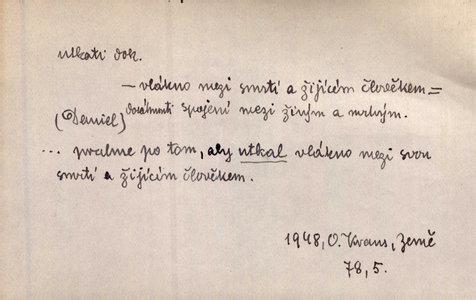 utkati dok.
— vlákno mezi smrtí a žijícím člověkem =
(Daniel) dosáhnouti spojení mezi živým a mrtvým.
... prahne po tom, aby utkal vlákno mezi svou
smrtí a žijícím člověkem.
1948, O. Kraus, Země
78, 5.